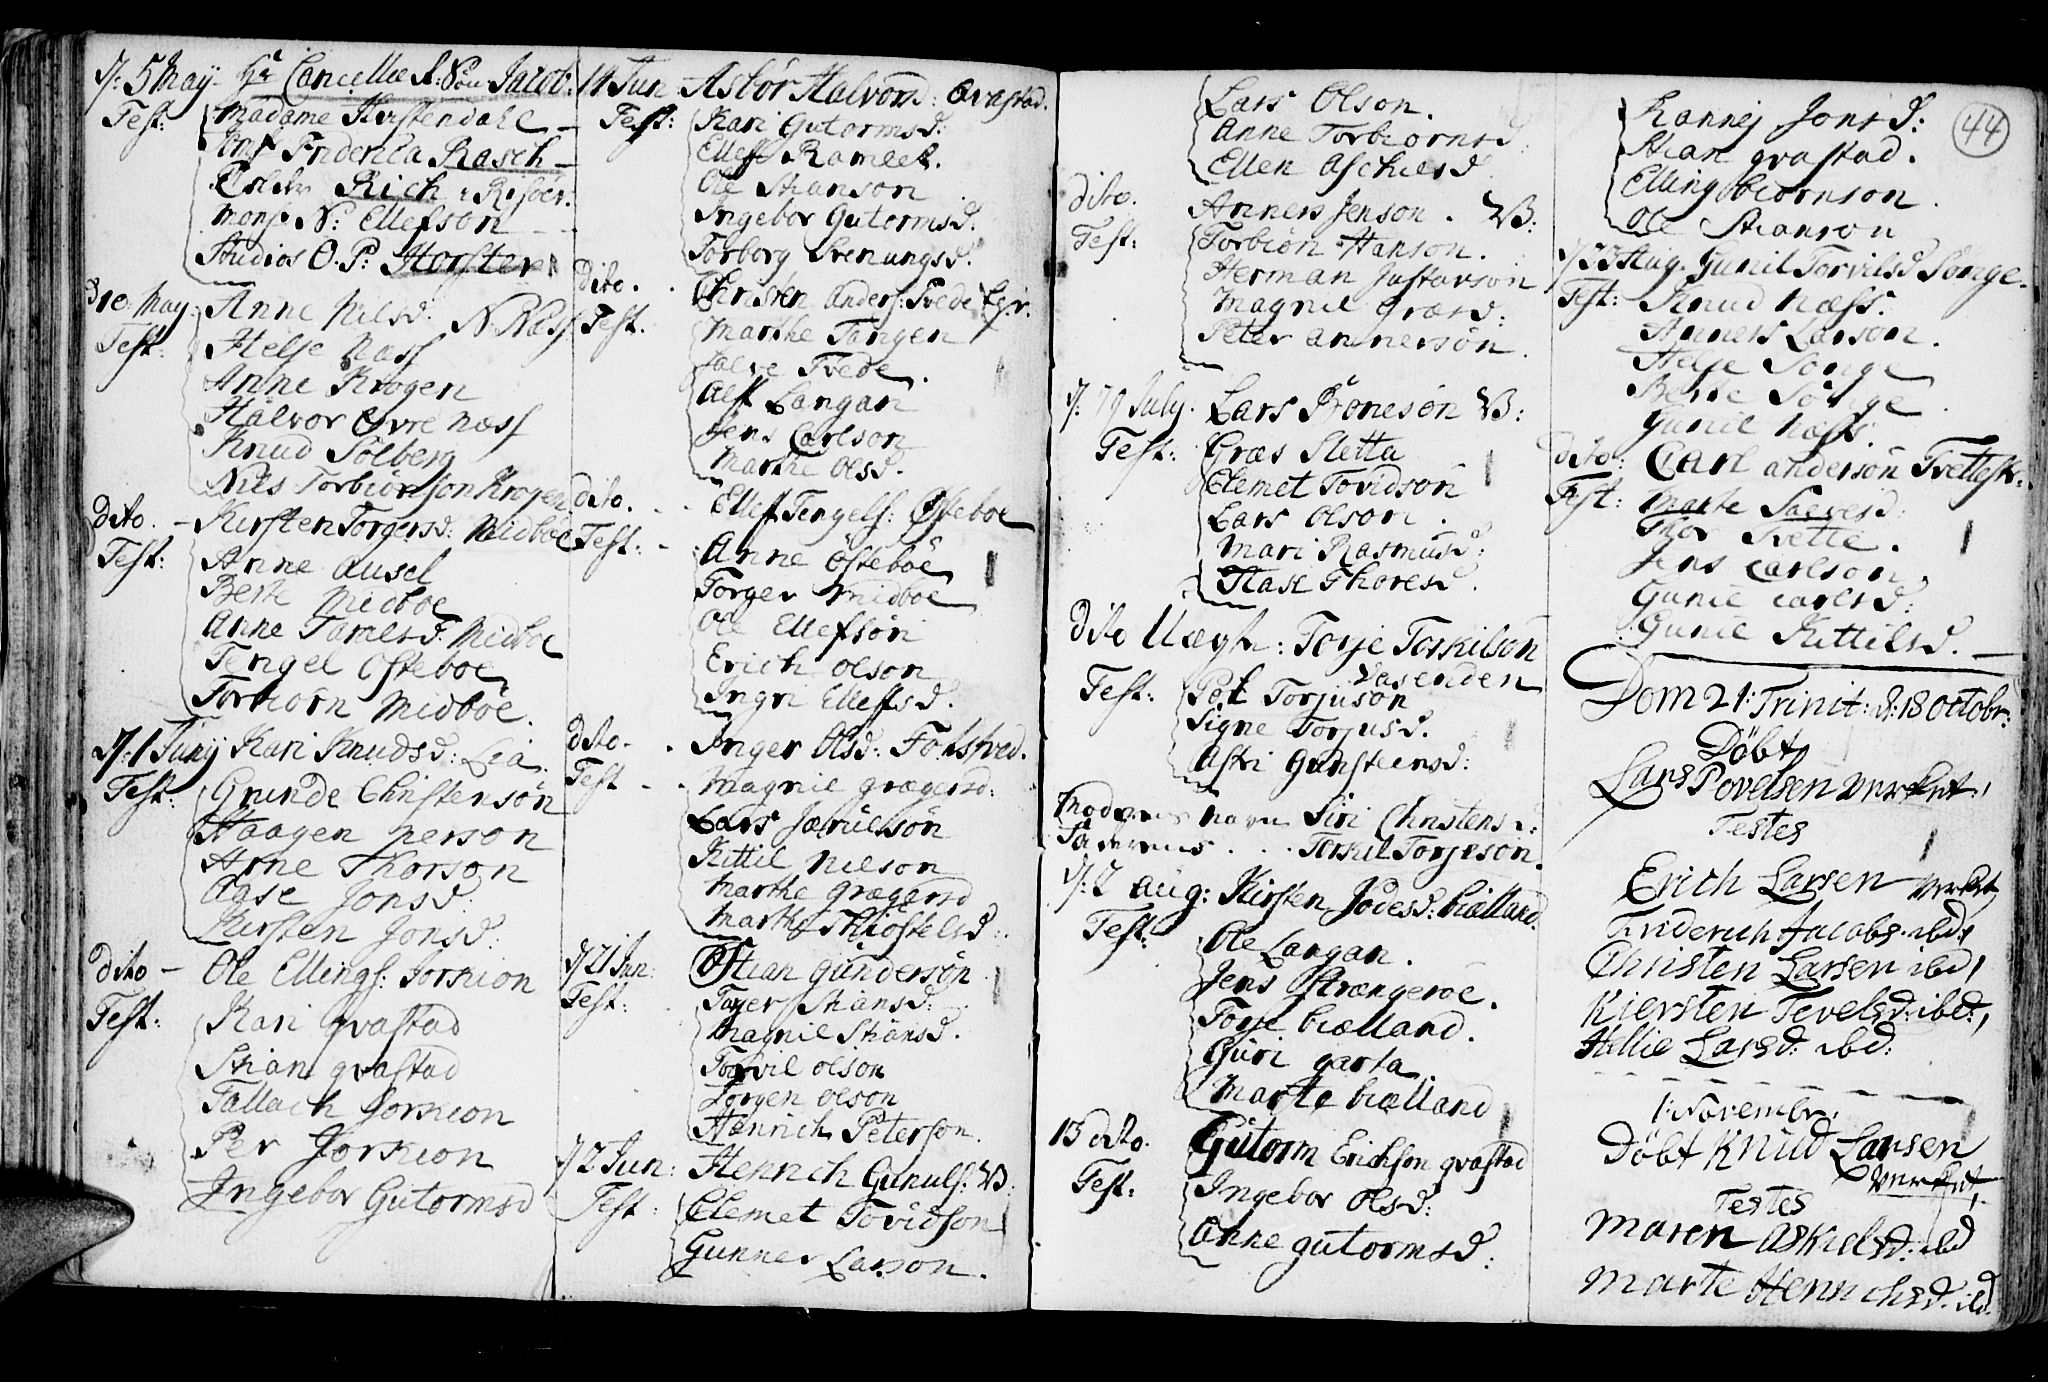 d: 5 May. Hr Cancellie R: Søn Jacob:
Test: Madame Kirstendahl
Friderica Rasch
Rich: Risöer.
Mons: N: Ellefson
Studios O. P: Horster
3die May. Anne Nilsd: N. Næss
Test: Helje Næss
Anne Krogen
Halvor Øvre Næss
Knud Solberg
Nils Torbiörnson Krogen
dito. Kirsten Torgersd: Midboe
Test: Anne Ausel
Berte Midboe
Anne Tamesd: Midboe
Tengel Østeboe
Torbiörn Midböe.
d: 1 Junij Kari Knudsd: Lia.
Test: Grunde Christensön
Haagen Person
Arne Thorson
Aase Jonsd:
Kirsten Jonsd:
dito Ole Ellings: Jorkion
Test: Kari qvastad
Stian qvastad
Tallach Jorkion
Per Jorkion
Ingebor Gutormsd
14 Jun Asbör Halvorsd: Qvastad.
Test: Kari Gutormsd:
Ellef Ramlet.
Ole Stianson
Ingebor Gutormsd:
Torborg Svenungsd.
dito. Christen Anders: Tvede
Test. Marthe Tangen
Salve Tvede.
Alf Langan
Jens Carlson
Marthe Olsd.
dito. Ellef Tengels: Østeboe
Test: Anne Östeböe
Torger Midboe
Ole Ellefsön
Erich Olson
Ingri Ellefsd.
dito. Inger Olsd: Fokstved.
Test Magnil grægersd:
Lars Jörulsön
Kittil Nilson
Marthe grægersd
Marthe Thiostelsd:
d 21 Jun: Stian Gundersön
Test: Tager Stiansd:
Magnil Stiansd.
Torvil Olson
Jörgen Olson
Henrich Peterson.
d 2 Jun: Henrich Gunuls: VB:
Test: Clemet Tovidson
Gunner Larson.
Lars Olson.
Anne Torbiörnsd:
Ellen Aschiesd.
dito. Anners Jenson. VB:
Test: Torbiön Hanson.
Herman Gustavson
Magnil Græsd:
Peter Annersön.
d: 19 July. Lars Pöneson VB:
Test: Græs Sletta
Clemet Tovidson
Lars Olson.
Mari Rasmusd:
Aase Thoresd.
dito Uægt: Torje Torkilson
Vasenden
Test: Pet Torjuson
Signe Torjusd.
Astri Gunsteensd:
Moderens navn Siri Christensd:
Faderens Torkil Torjeson.
d: 2 Aug: Kirsten Jödesd: biælland.
Test: Ole Langan.
Jens Strængeröe.
Torje biælland.
Guri garta
Marte biælland
13 dito. Gutorm Erichson qvastad
Test: Ingebor Olsd:
Anne Gutormsd:
44
Rannej Jonsd:
Stian qvastad.
Elling biörnson.
Ole Stianson
d 23 Aug. Gunil Torvilsd Songe.
Test: Knud Næss.
Anners Larson.
Helje Songe
Berte Songe
Gunil Næss.
dito: Carl Anderson Tvettest:
Test: Marte Salvesd:
Thor Tvette.
Jens Carlson.
Gunil Carlsd:
Gunil Kittilsd.
Dom 21: Trinit: d: 18 octobr:
Döbt
Lars Povelsen Verket,
Testes
Erich Larsen Verket,
Friderich Jacobs. ibd,
Christen Larsen ibd,
Kiersten Tevelsd: ibd:,
Hellie Larsd: ibd:
1. Novembr.
Döbt Knud Larsen
Verket,
Testes
Maren Askielsd: ibd
Marte Henrichsd. ibd.